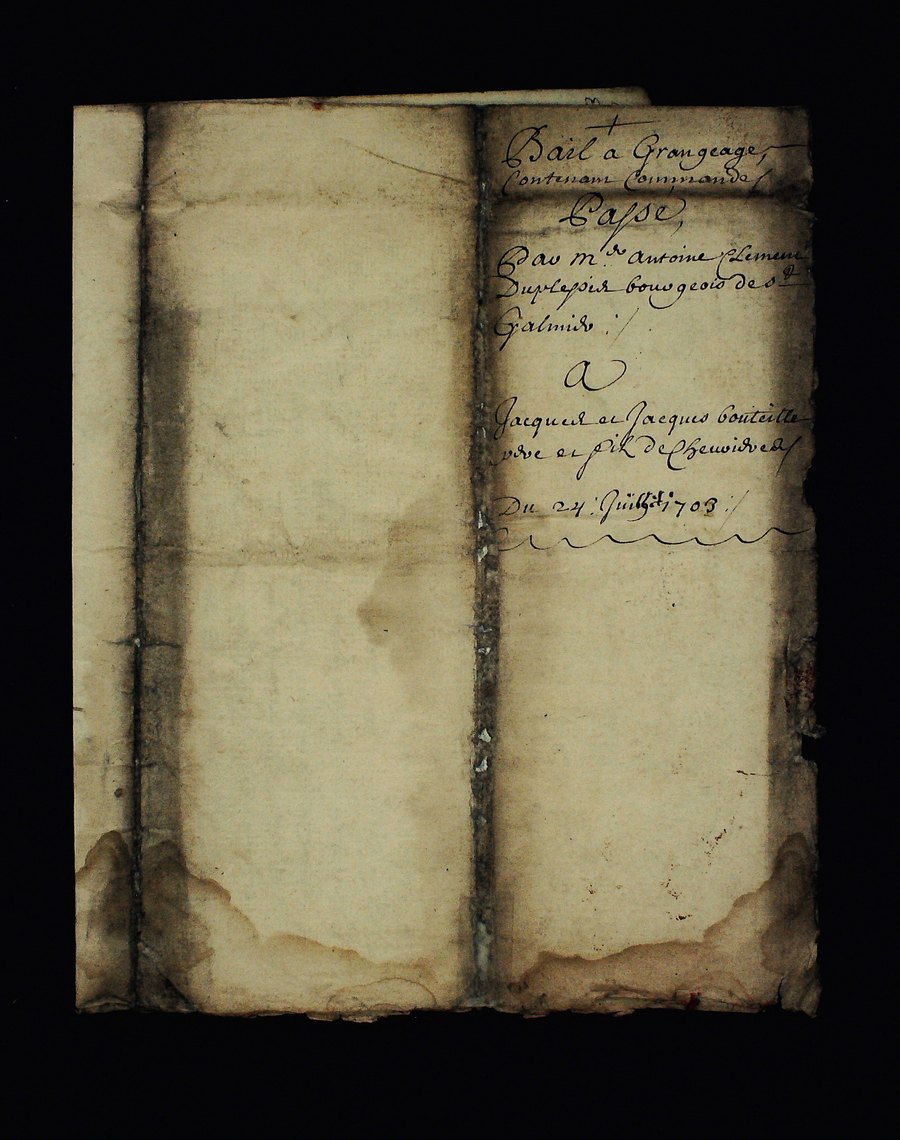 Bail a Grangeage,
Contenant Commande /
Passé,
Par mre antoine Clement
Duplessis bourgeois de st
Galmier :/
a
Jacques et Jacques bouteille
pere et fils de Chevrieres /
Du 24: Juillet 1703 :/